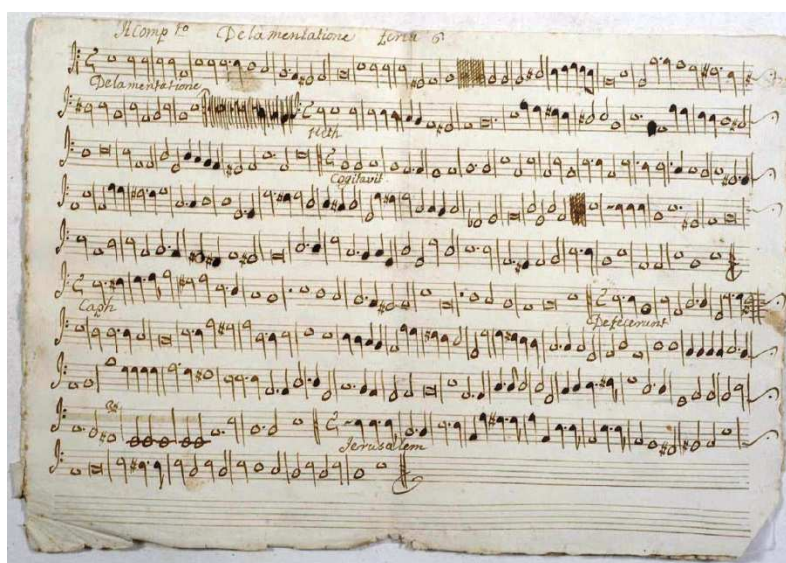 Acomp.to De la mentatione feria 6
De lamentatione
Heth
Cogitavit
Caph
Defecerunt
Jerusalem